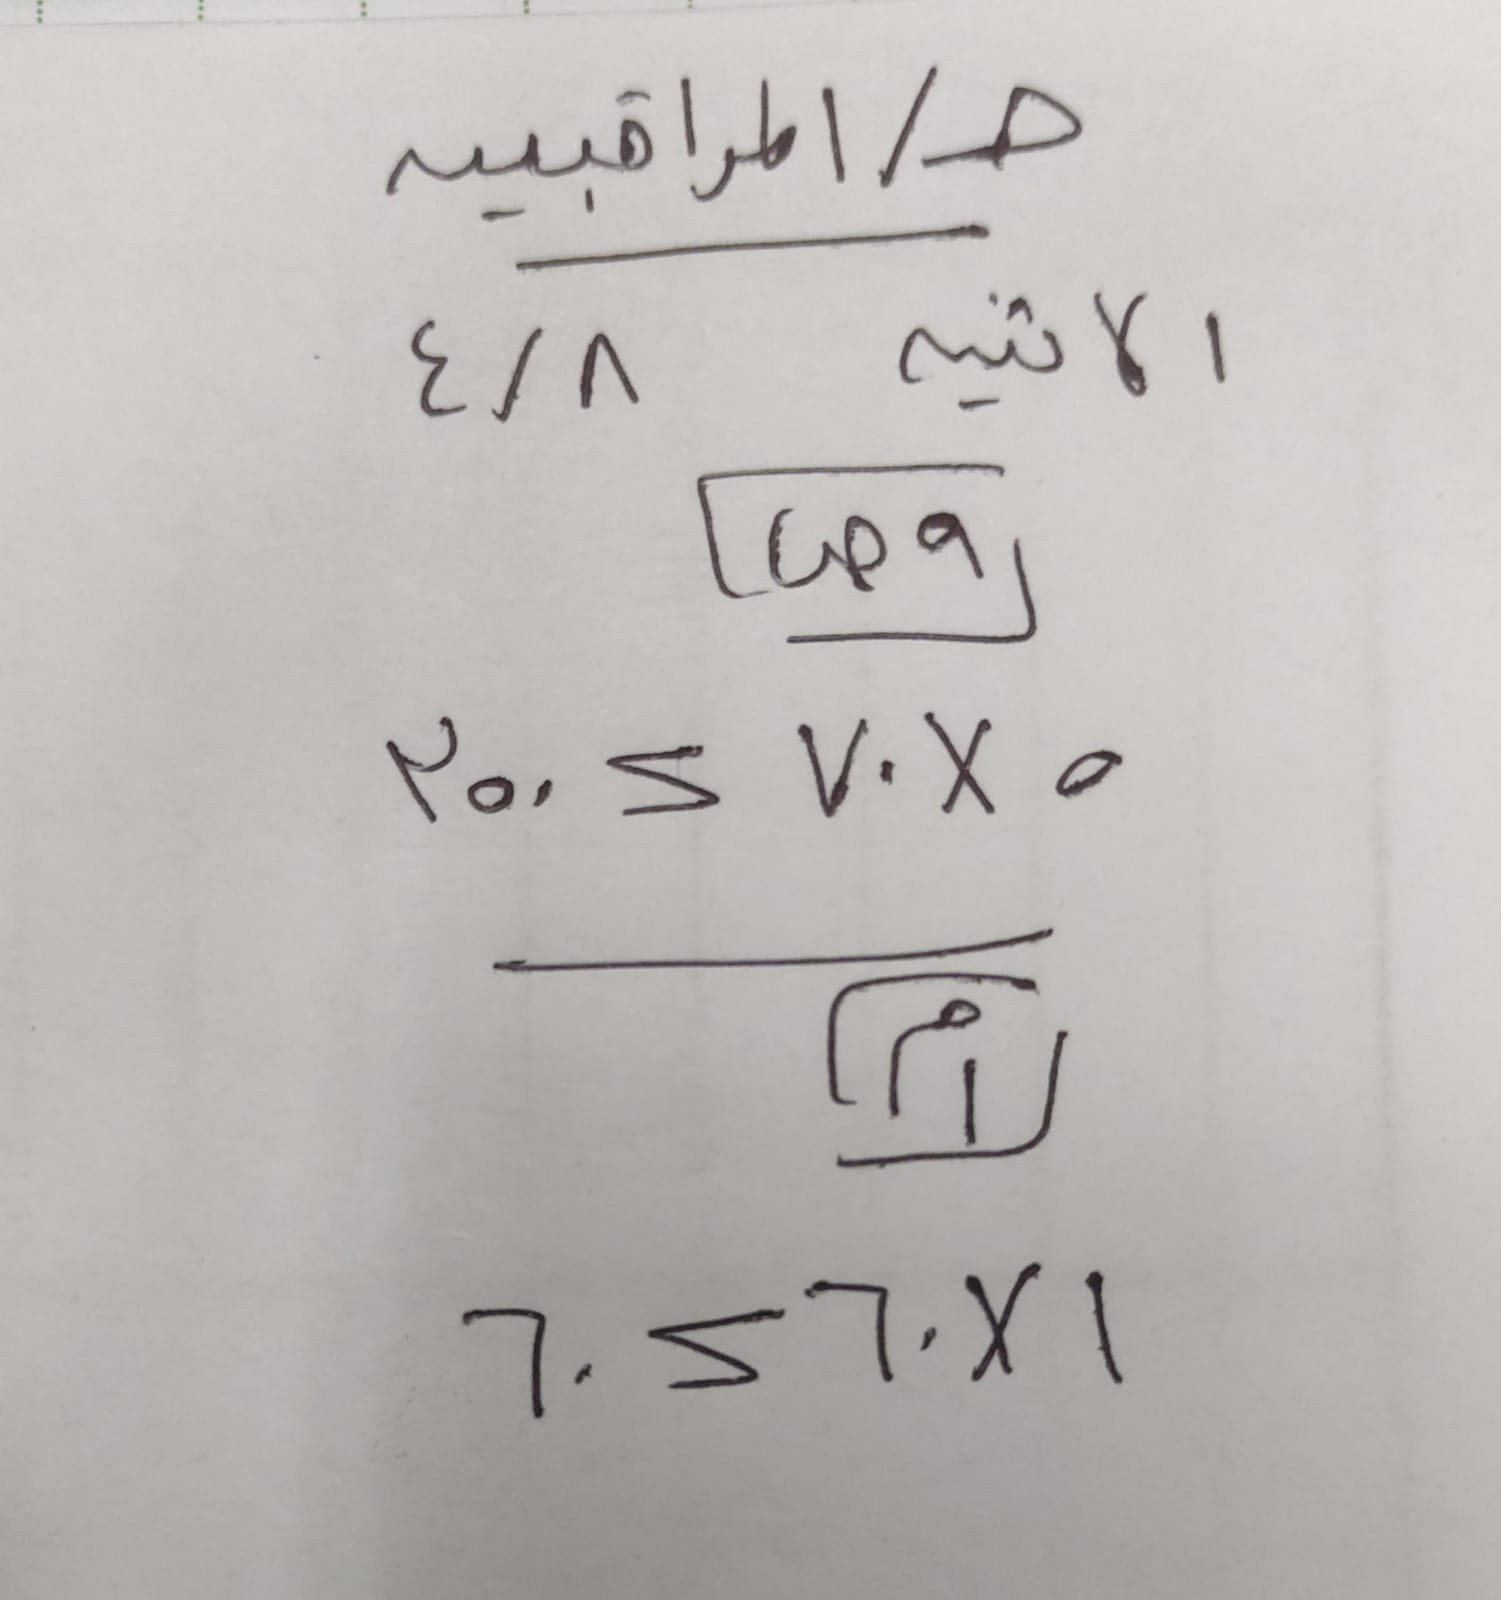 ح/المراقبين
الاثنين ٤/٨
٩ص
٥ X ٧٠ = ٣٥٠
١م
١ X ٦٠ = ٦٠